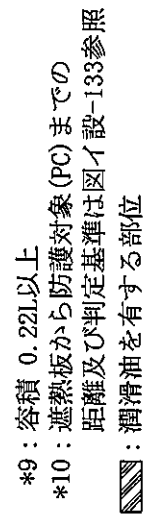 *9：容積 0.22L以上
*10：遮熱板から防護対象(PC)までの
距離及び判定基準は図イ設-133参照
：潤滑油を有する部位